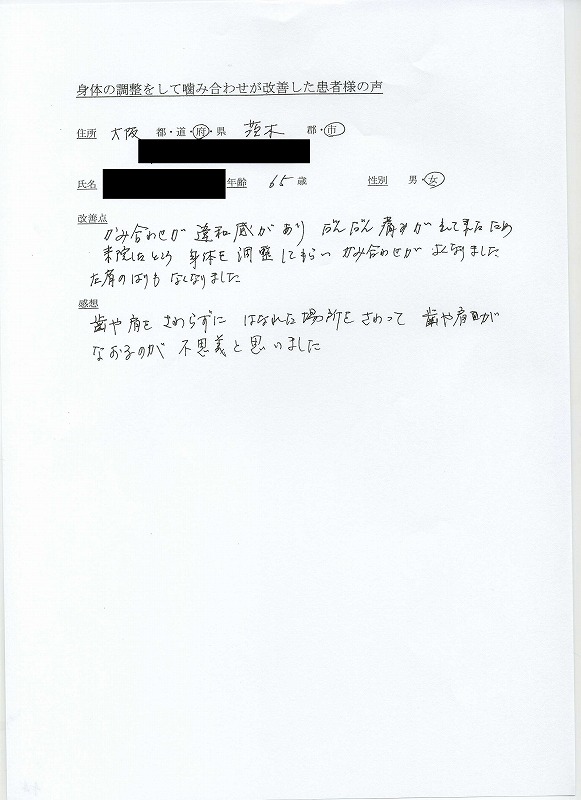 身体の調整をして噛み合わせが改善した患者様の声
住所 大阪 都・道・府・県 茨木 郡・市
氏名 年齢 65 歳 性別 男・女
改善点
かみ合わせが違和感があり だんだん痛みがでて来たため
来院したところ 身体を調整してもらい かみ合わせがよくなりました
左肩のはりもなくなりました
感想
歯や肩をさわらずに はなれた場所をさわって 歯や肩が
なおるのが不思議と思いました